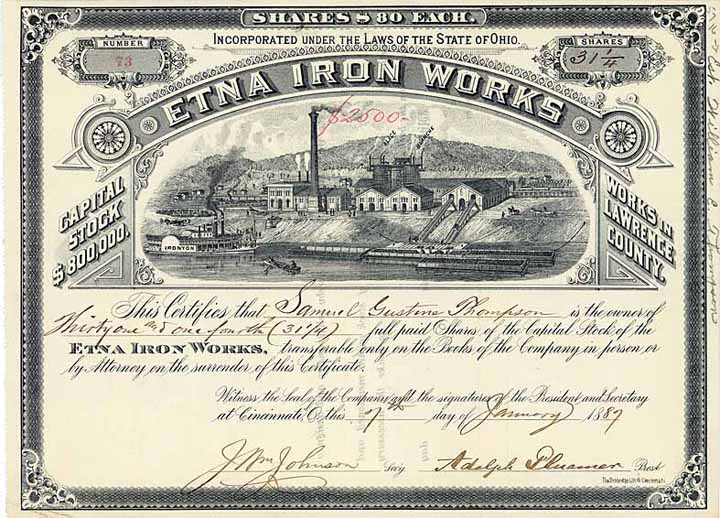 SHARES $80 EACH.
INCORPORATED UNDER THE LAWS OF THE STATE OF OHIO.
NUMBER
73
SHARES
31 1/4
ETNA IRON WORKS
$2500-
CAPITAL
STOCK
$800,000.
WORKS IN
LAWRENCE
COUNTY.
IRONTON
This Certifies that Samuel Gustine Thompson is the owner of
Thirty one and one fourth (31 1/4) full paid Shares of the Capital Stock of the
ETNA IRON WORKS, transferable only on the Books of the Company in person or
by Attorney on the surrender of this Certificate.
Witness the Seal of the Company and the signatures of the President and Secretary
at Cincinnati, O. this 7th day of January 1887
J Wm Johnson Secy. Adolph Pluemer Prest